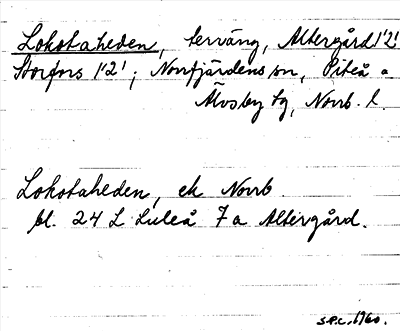 Lokotaheden, terräng, Altergård 1'2!
Storfors 1'2'; Norrfjärdens sn, Piteå o
Älvsby tg, Norrb. l.
Lokotaheden, ek Norrb.
bl. 24 L Luleå 7a Altergård.
S.P.L. 1960.